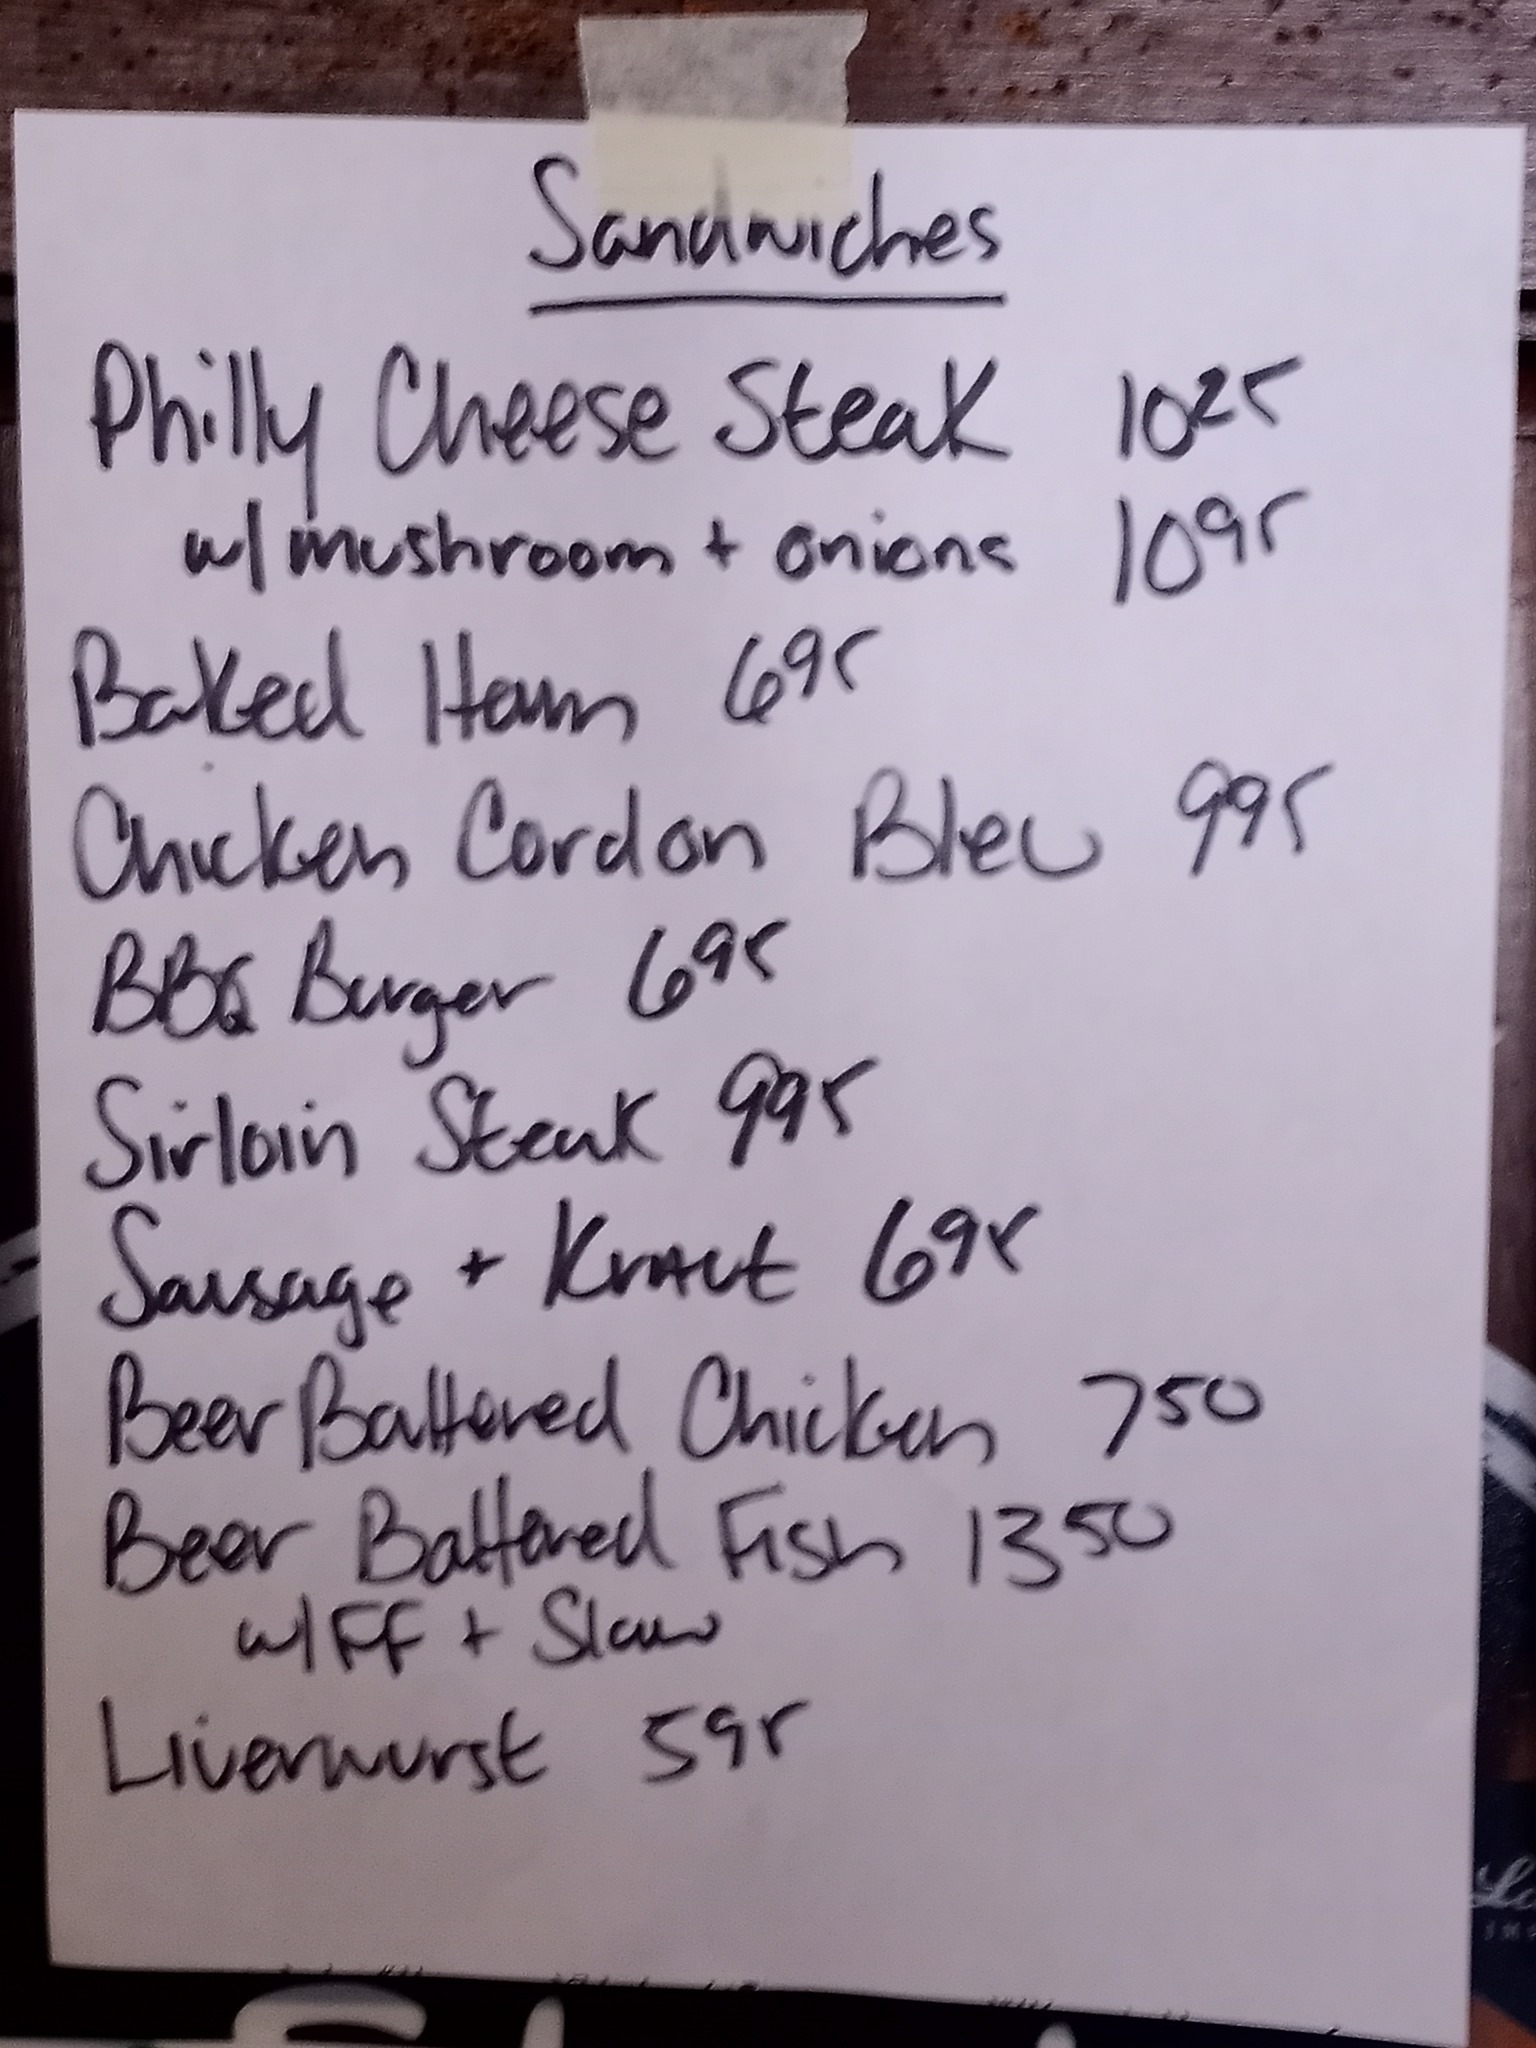 Sandwiches
Philly Cheese Steak 1025
w/ mushroom + onions 1095
Baked Ham 695
Chicken Cordon Bleu 995
BBQ Burger 695
Sirloin Steak 995
Sausage + Kraut 695
Beer Battered Chicken 750
Beer Battered Fish 1350
w/ FF + Slaw
Liverwurst 595